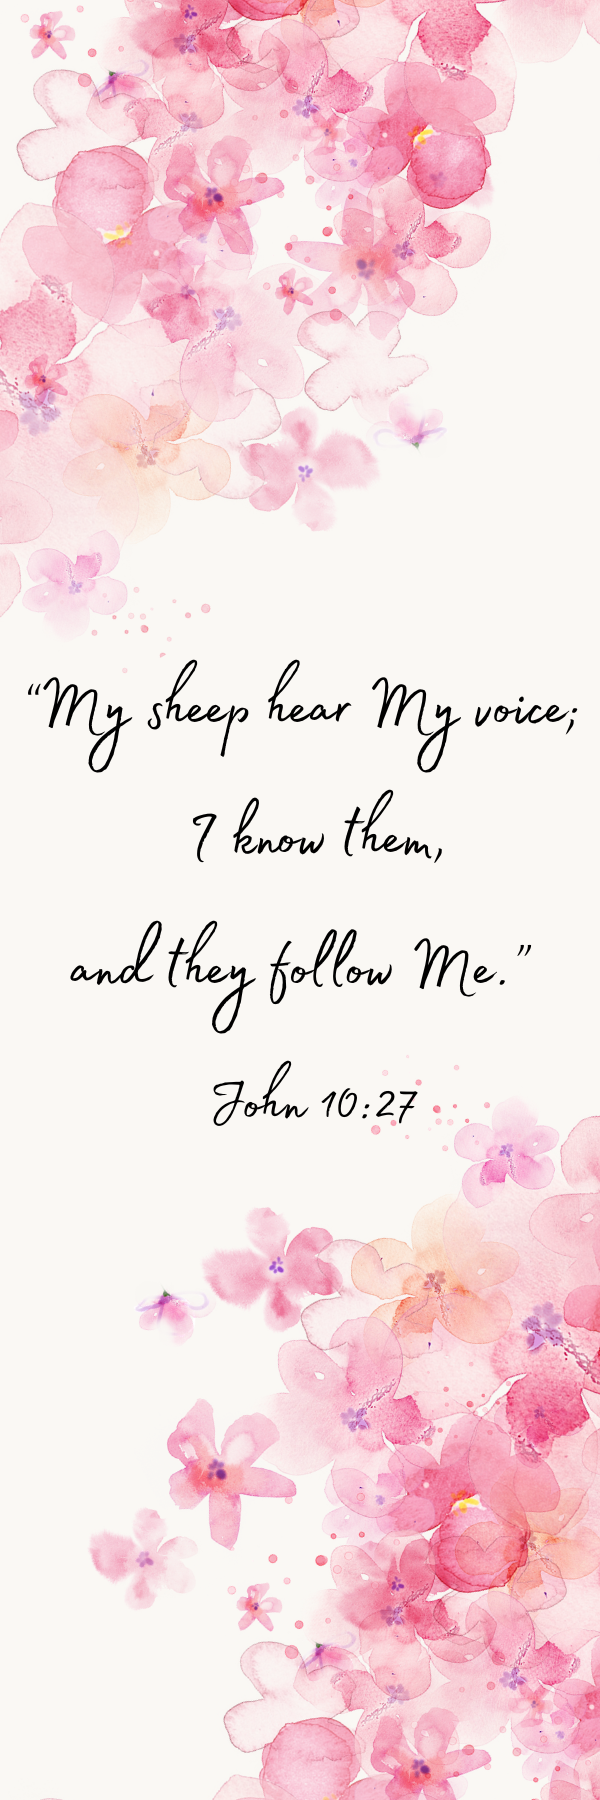 “My sheep hear My voice;
I know them,
and they follow Me.”
John 10:27